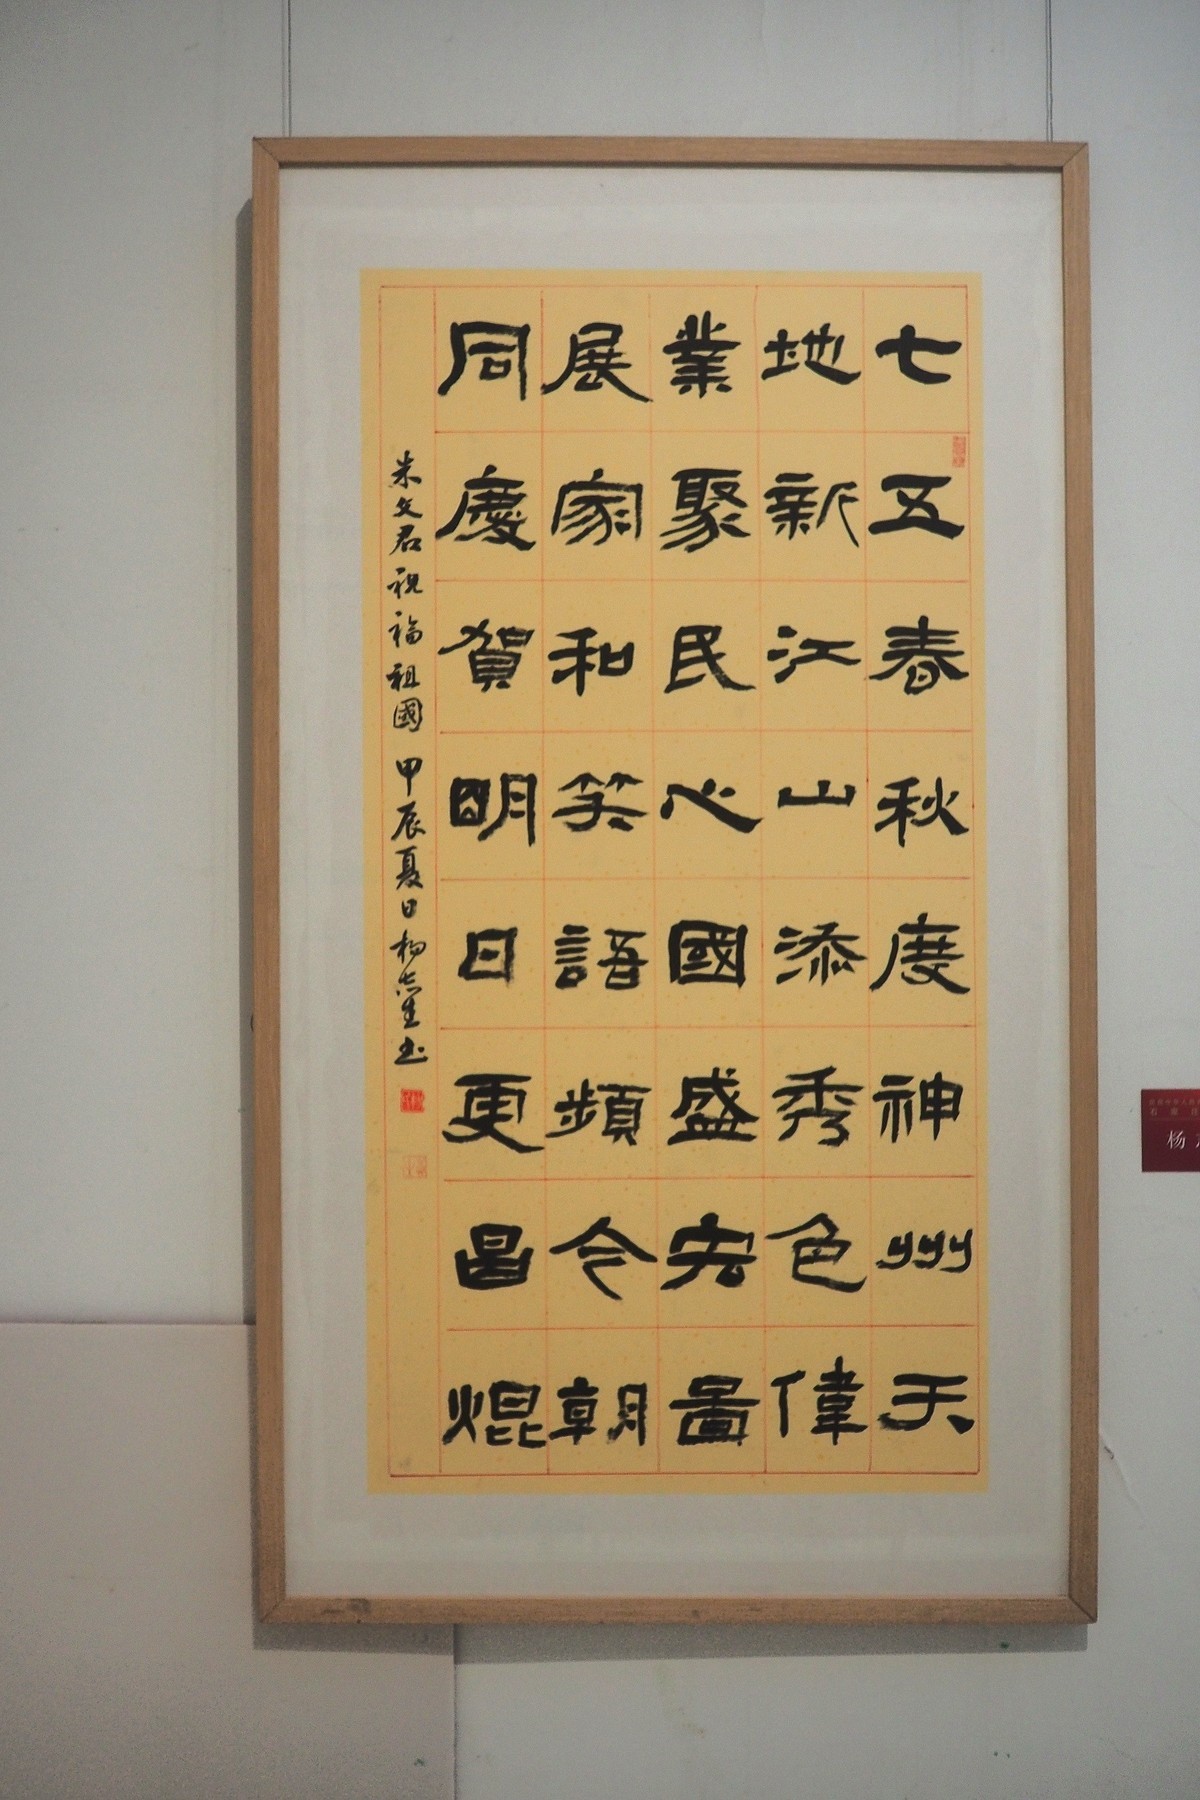 七五春秋度神州天
地新江山添秀色偉
業聚民心國盛宏圖
展家和笑語頻今朝
同慶賀明日更昌焜
朱文君祝福祖國 甲辰夏日楊志生书
杨